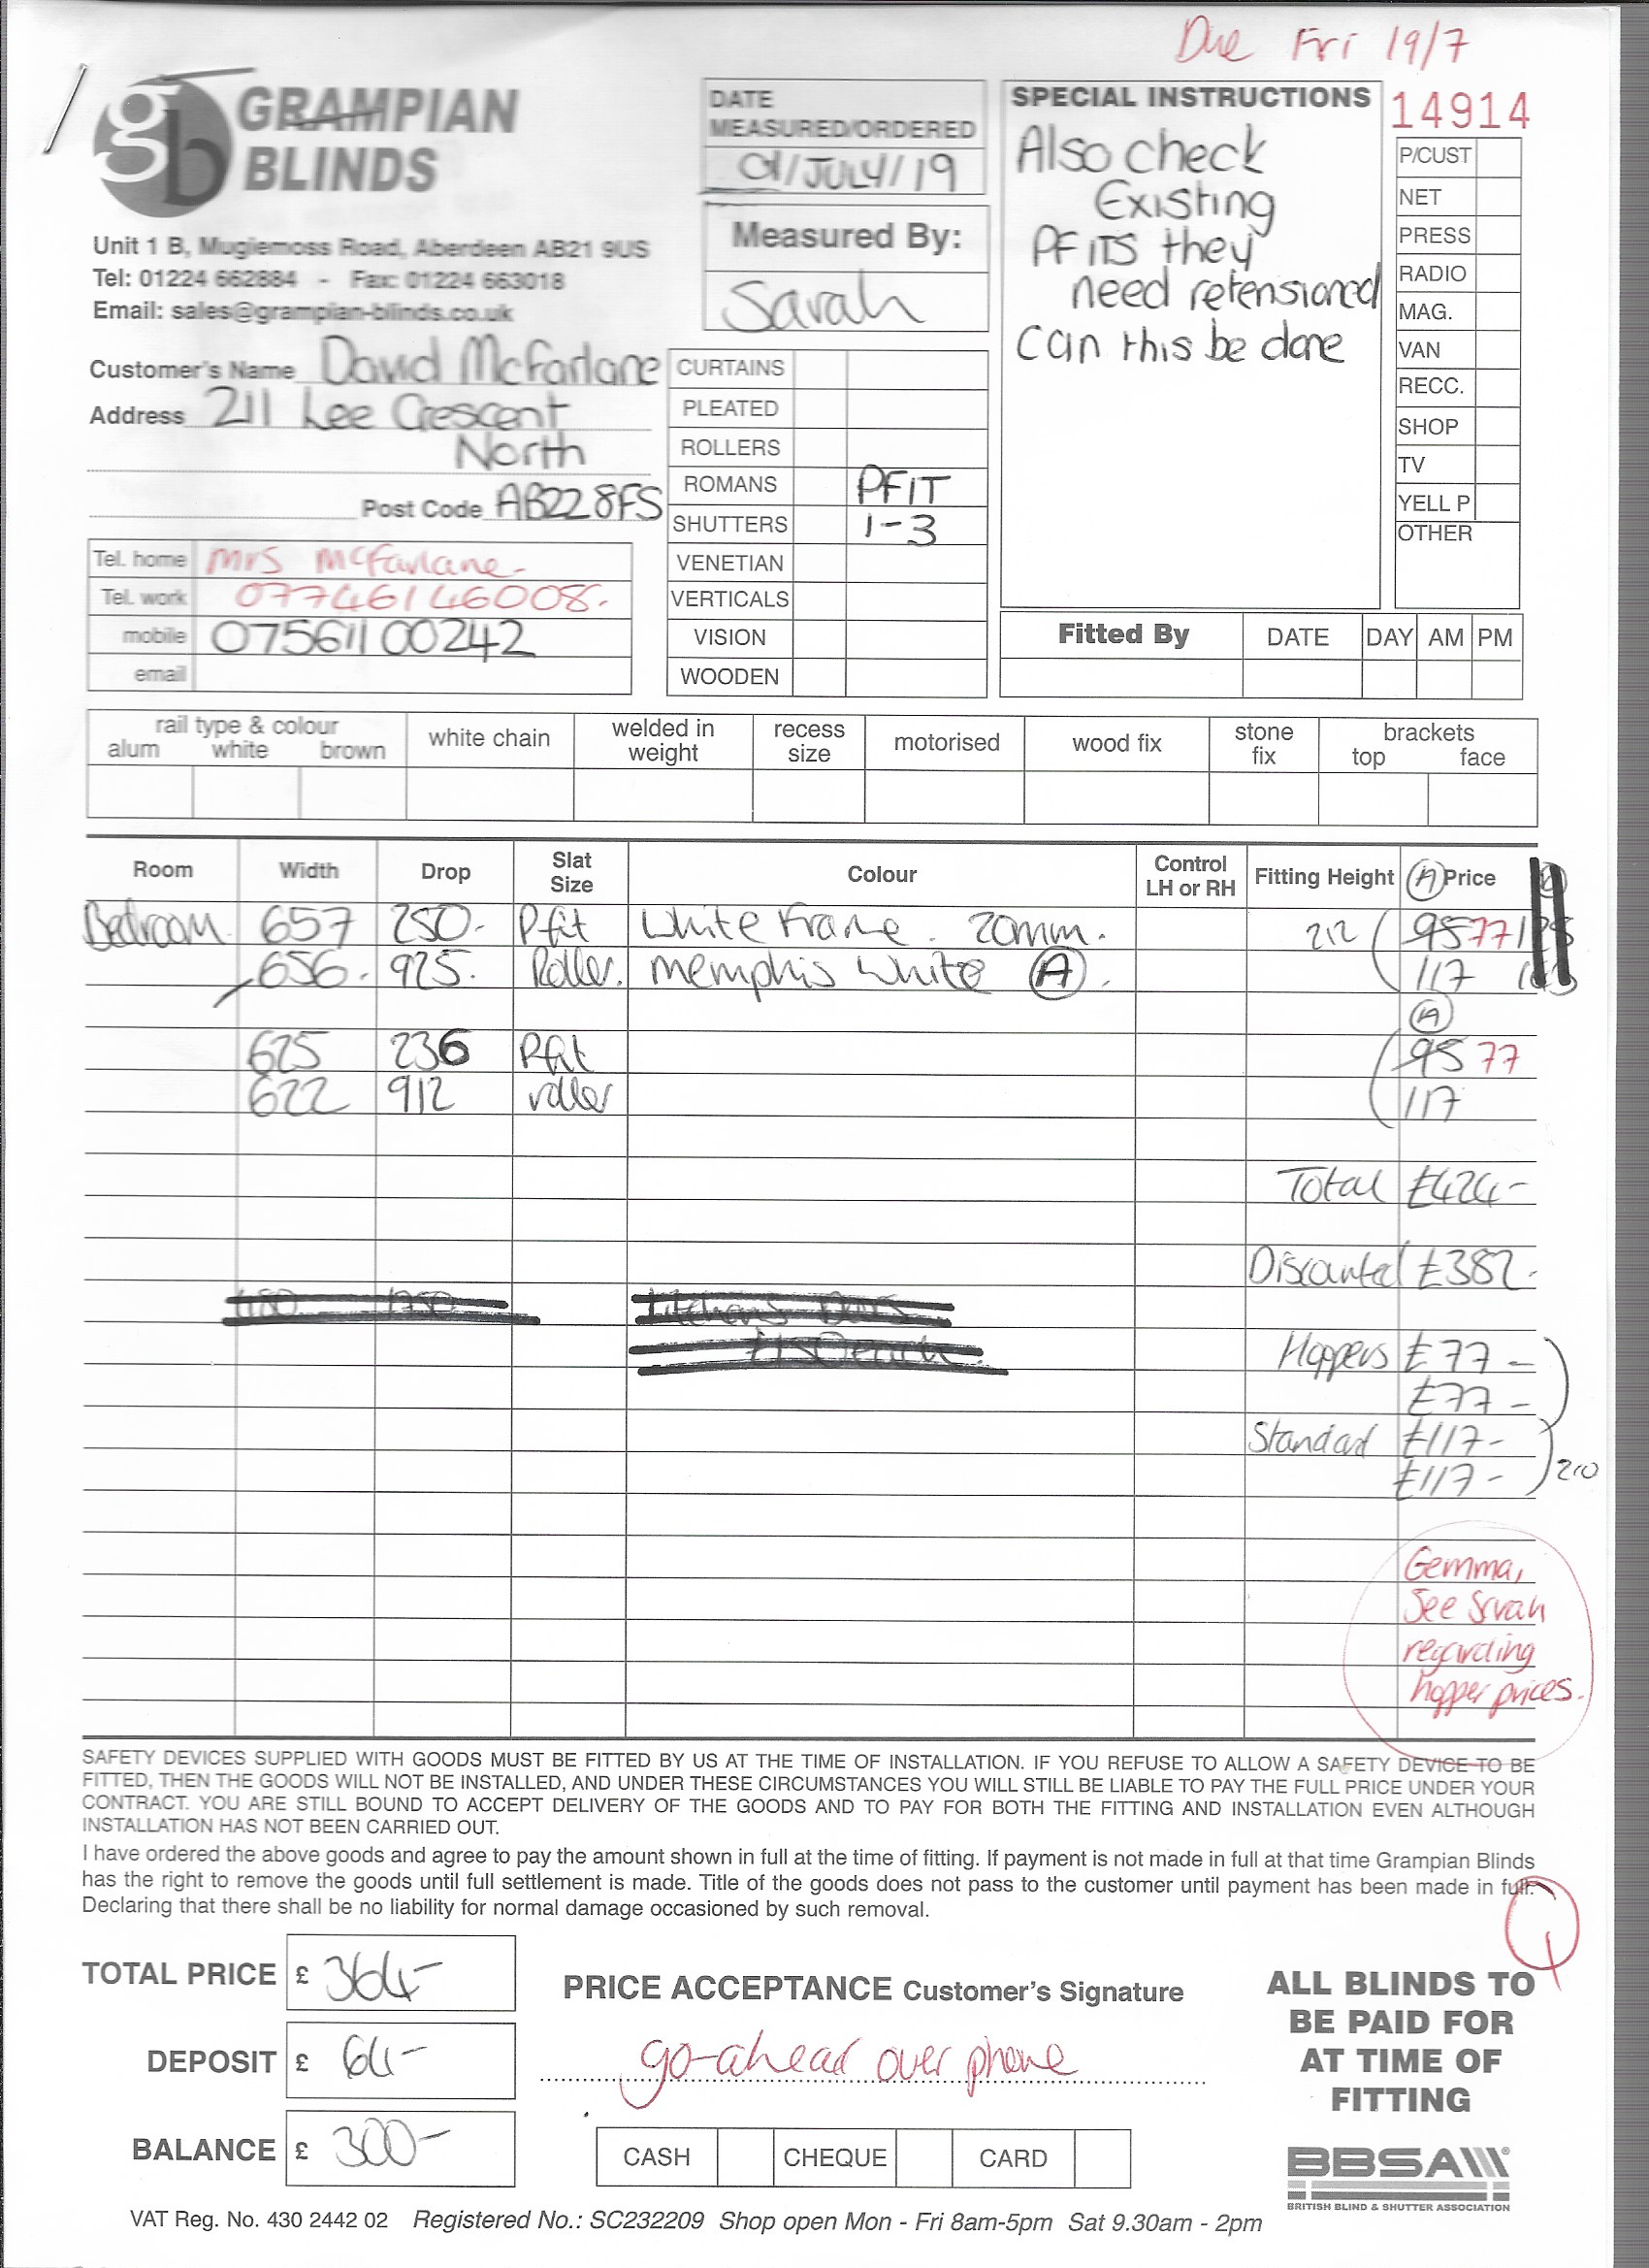 Due Fri 19/7
gb GRAMPIAN
BLINDS
Unit 1 B, Muglemoss Road, Aberdeen AB21 9US
Tel: 01224 662884 - Fax: 01224 663018
Email: sales@grampian-blinds.co.uk
DATE
MEASURED/ORDERED
01/JULY/19
Measured By:
Sarah
SPECIAL INSTRUCTIONS
Also check
Existing
PFITS they
need retensioned
can this be done
14914
P/CUST
NET
PRESS
RADIO
MAG.
VAN
RECC.
SHOP
TV
YELL P
OTHER
Customer's Name David McFarlane
Address 211 Lee Crescent
North
Post Code AB22 8FS
Tel. home Mrs McFarlane-
Tel. work 07746146008.
mobile 07561100242
email
CURTAINS
PLEATED
ROLLERS
ROMANS PFIT
SHUTTERS 1-3
VENETIAN
VERTICALS
VISION
WOODEN
Fitted By DATE DAY AM PM
rail type & colour
alum white brown
white chain
welded in
weight
recess
size
motorised
wood fix
stone
fix
brackets
top face
Room Width Drop Slat Size Colour Control LH or RH Fitting Height (A) Price
Bedroom 657 250- Pfit White Frame. 20mm. 212 95 77
656. 925. Roller. Memphis White (A). 117
(A)
625 236 Pfit 95 77
622 912 roller 117
Total £424-
Discounted £382-
Hoppers £77-
£77-
Standard £117-
£117- 210
Gemma,
See Sarah
regarding
hopper prices.
SAFETY DEVICES SUPPLIED WITH GOODS MUST BE FITTED BY US AT THE TIME OF INSTALLATION. IF YOU REFUSE TO ALLOW A SAFETY DEVICE TO BE
FITTED, THEN THE GOODS WILL NOT BE INSTALLED, AND UNDER THESE CIRCUMSTANCES YOU WILL STILL BE LIABLE TO PAY THE FULL PRICE UNDER YOUR
CONTRACT. YOU ARE STILL BOUND TO ACCEPT DELIVERY OF THE GOODS AND TO PAY FOR BOTH THE FITTING AND INSTALLATION EVEN ALTHOUGH
INSTALLATION HAS NOT BEEN CARRIED OUT.
I have ordered the above goods and agree to pay the amount shown in full at the time of fitting. If payment is not made in full at that time Grampian Blinds
has the right to remove the goods until full settlement is made. Title of the goods does not pass to the customer until payment has been made in full.
Declaring that there shall be no liability for normal damage occasioned by such removal.
TOTAL PRICE £ 364-
DEPOSIT £ 64-
BALANCE £ 300-
PRICE ACCEPTANCE Customer's Signature
go-ahead over phone
CASH CHEQUE CARD
ALL BLINDS TO
BE PAID FOR
AT TIME OF
FITTING
BBSA
BRITISH BLIND & SHUTTER ASSOCIATION
VAT Reg. No. 430 2442 02 Registered No.: SC232209 Shop open Mon - Fri 8am-5pm Sat 9.30am - 2pm